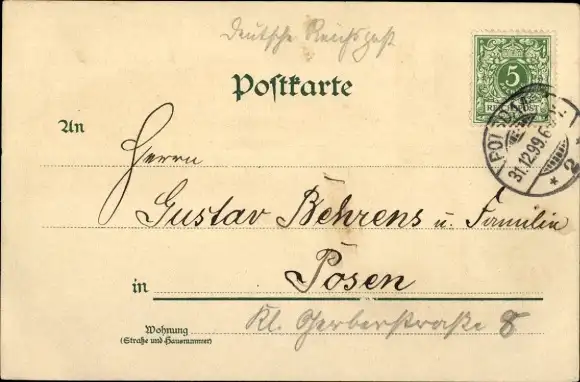 Deutsche Reichspost
Postkarte
5
REICHSPOST
POTSDAM
31.12.99.6-7
* 2 *
An
Herrn
Gustav Behrens u. Familie
in Posen
Kl. Gerberstraße 8
Wohnung
(Straße und Hausnummer)